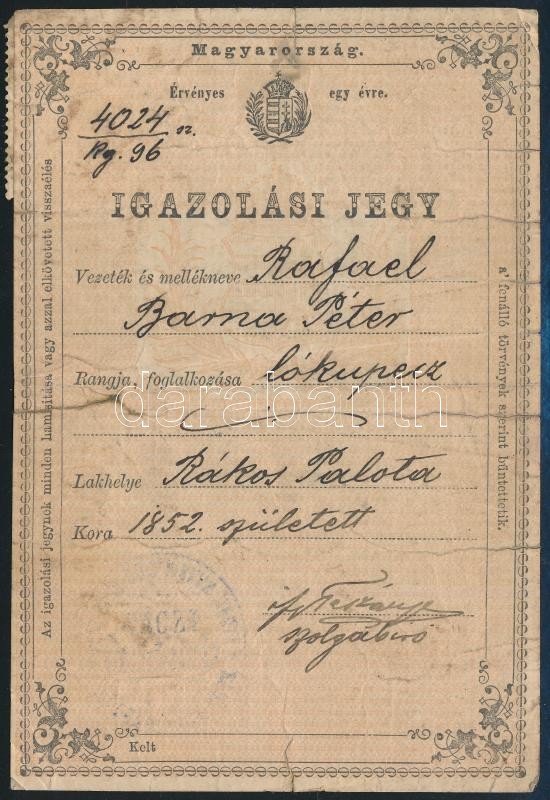 Magyarország.
Érvényes egy évre.
4024 sz.
Rg. 96
IGAZOLÁSI JEGY
Vezeték és mellékneve Rafael
Barna Péter
Rangja, foglalkozása lókupecz
darabanth
Lakhelye Rákos Palota
Kora 1852. született
szolgabiró
Kelt
Az igazolási jegynek minden hamisitása vagy azzal elkövetett visszaélés
a' fenálló törvények szerint büntettetik.